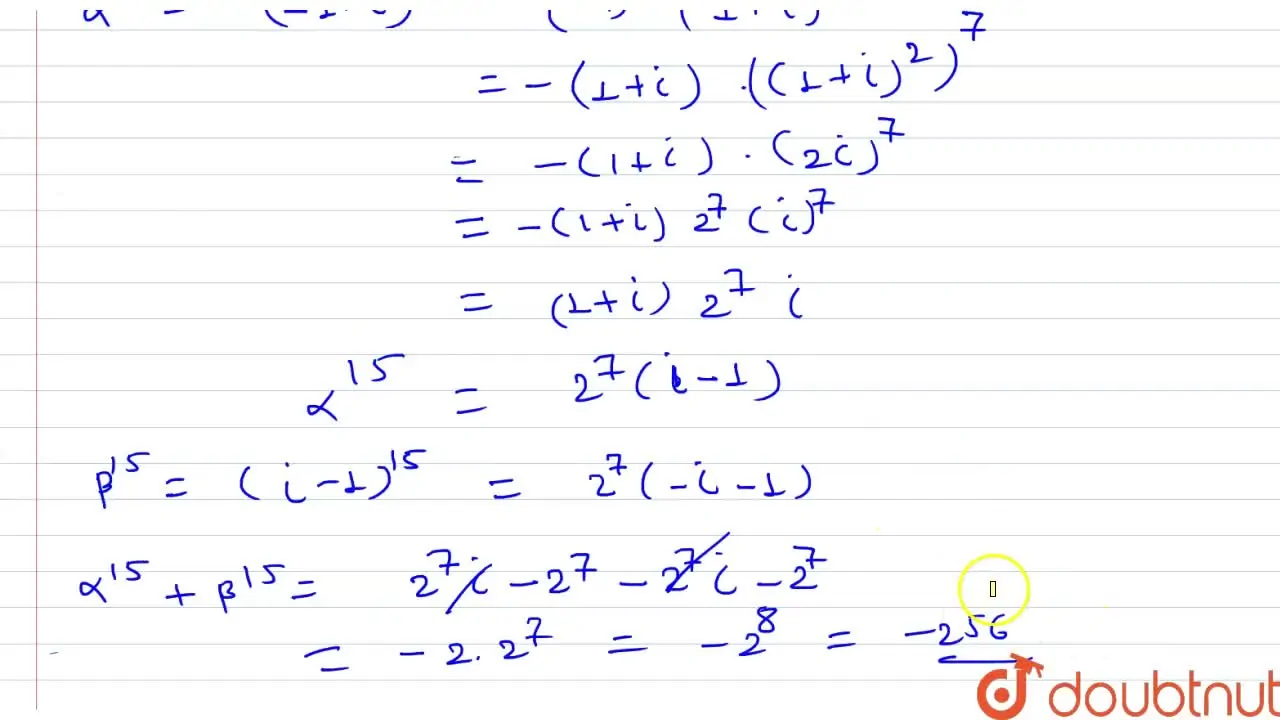 = -(1+i) . ((1+i)²)⁷
= -(1+i) . (2i)⁷
= -(1+i) 2⁷ (i)⁷
= (1+i) 2⁷ i
α¹⁵ = 2⁷(i-1)
β¹⁵ = (i-1)¹⁵ = 2⁷(-i-1)
α¹⁵ + β¹⁵ = 2⁷i - 2⁷ - 2⁷i - 2⁷
= -2.2⁷ = -2⁸ = -256
doubtnut